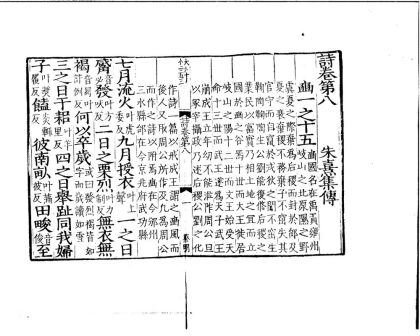 詩卷第八
朱熹集傳
豳一之十五
豳國名在禹貢雍州
岐山之北原隰之野
虞夏之際棄為后稷而封於邰及
夏之衰棄稷不務棄子不窋失其
官守而自竄於戎狄之閒不窋生
鞠陶鞠陶生公劉能復脩后稷之
業民以富實乃相土地之宜而立
國於豳之谷焉十世而大王徙居
岐山之陽十二世而文王始受天
命十三世而武王遂為天子武王
崩成王立年幼不能涖阼周公旦
以冢宰攝政乃述后稷公劉之化
作詩一篇以戒成王謂之豳風而
後人又取周公所作及凡為周公
而作之詩以附焉豳在今邠州
三水縣邰在今京兆府武功縣
詩卷第八
七月流火九月授衣一之日
觱發二之日栗烈無衣無
褐何以卒歲
三之日于耜四之日舉趾同我婦
子饁彼南畝田畯至